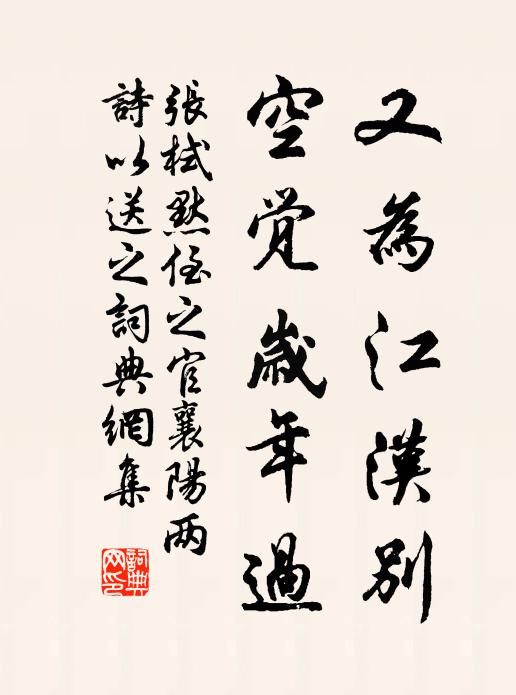 又為江漢別
空覺歲年過
張栻默侄之官襄陽兩
詩以送之詞典網集
詞典
网印